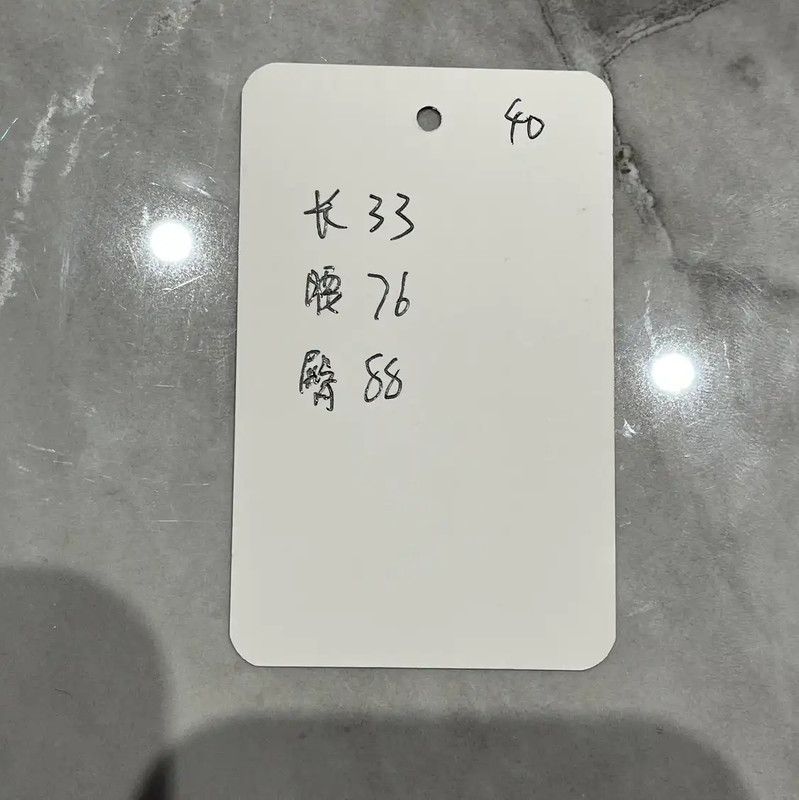 40
长 33
腰 76
臀 88